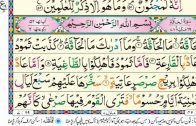 اِنَّهٗ لَمَجْنُوْنٌ وَمَا هُوَ اِلَّا ذِكْرٌ لِّلْعٰلَمِيْنَ
بِسْمِ اللّٰهِ الرَّحْمٰنِ الرَّحِيْمِ
اَلْحَآقَّةُ مَا الْحَآقَّةُ وَمَآ اَدْرٰىكَ مَا الْحَآقَّةُ كَذَّبَتْ ثَمُوْدُ
وَعَادٌۢ بِالْقَارِعَةِ فَاَمَّا ثَمُوْدُ فَاُهْلِكُوْا بِالطَّاغِيَةِ وَاَمَّا عَادٌ
فَاُهْلِكُوْا بِرِيْحٍ صَرْصَرٍ عَاتِيَةٍ سَخَّرَهَا عَلَيْهِمْ سَبْعَ لَيَالٍ
وَّثَمٰنِيَةَ اَيَّامٍ حُسُوْمًا فَتَرَى الْقَوْمَ فِيْهَا صَرْعٰى كَاَنَّهُمْ